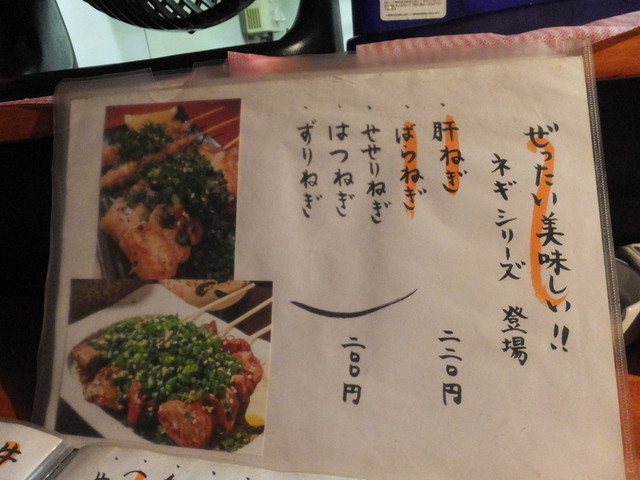 ぜったい美味しい!!
ネギシリーズ 登場
・肝ねぎ 二二〇円
・ばらねぎ
・せせりねぎ
・はつねぎ
・ずりねぎ
二〇〇円